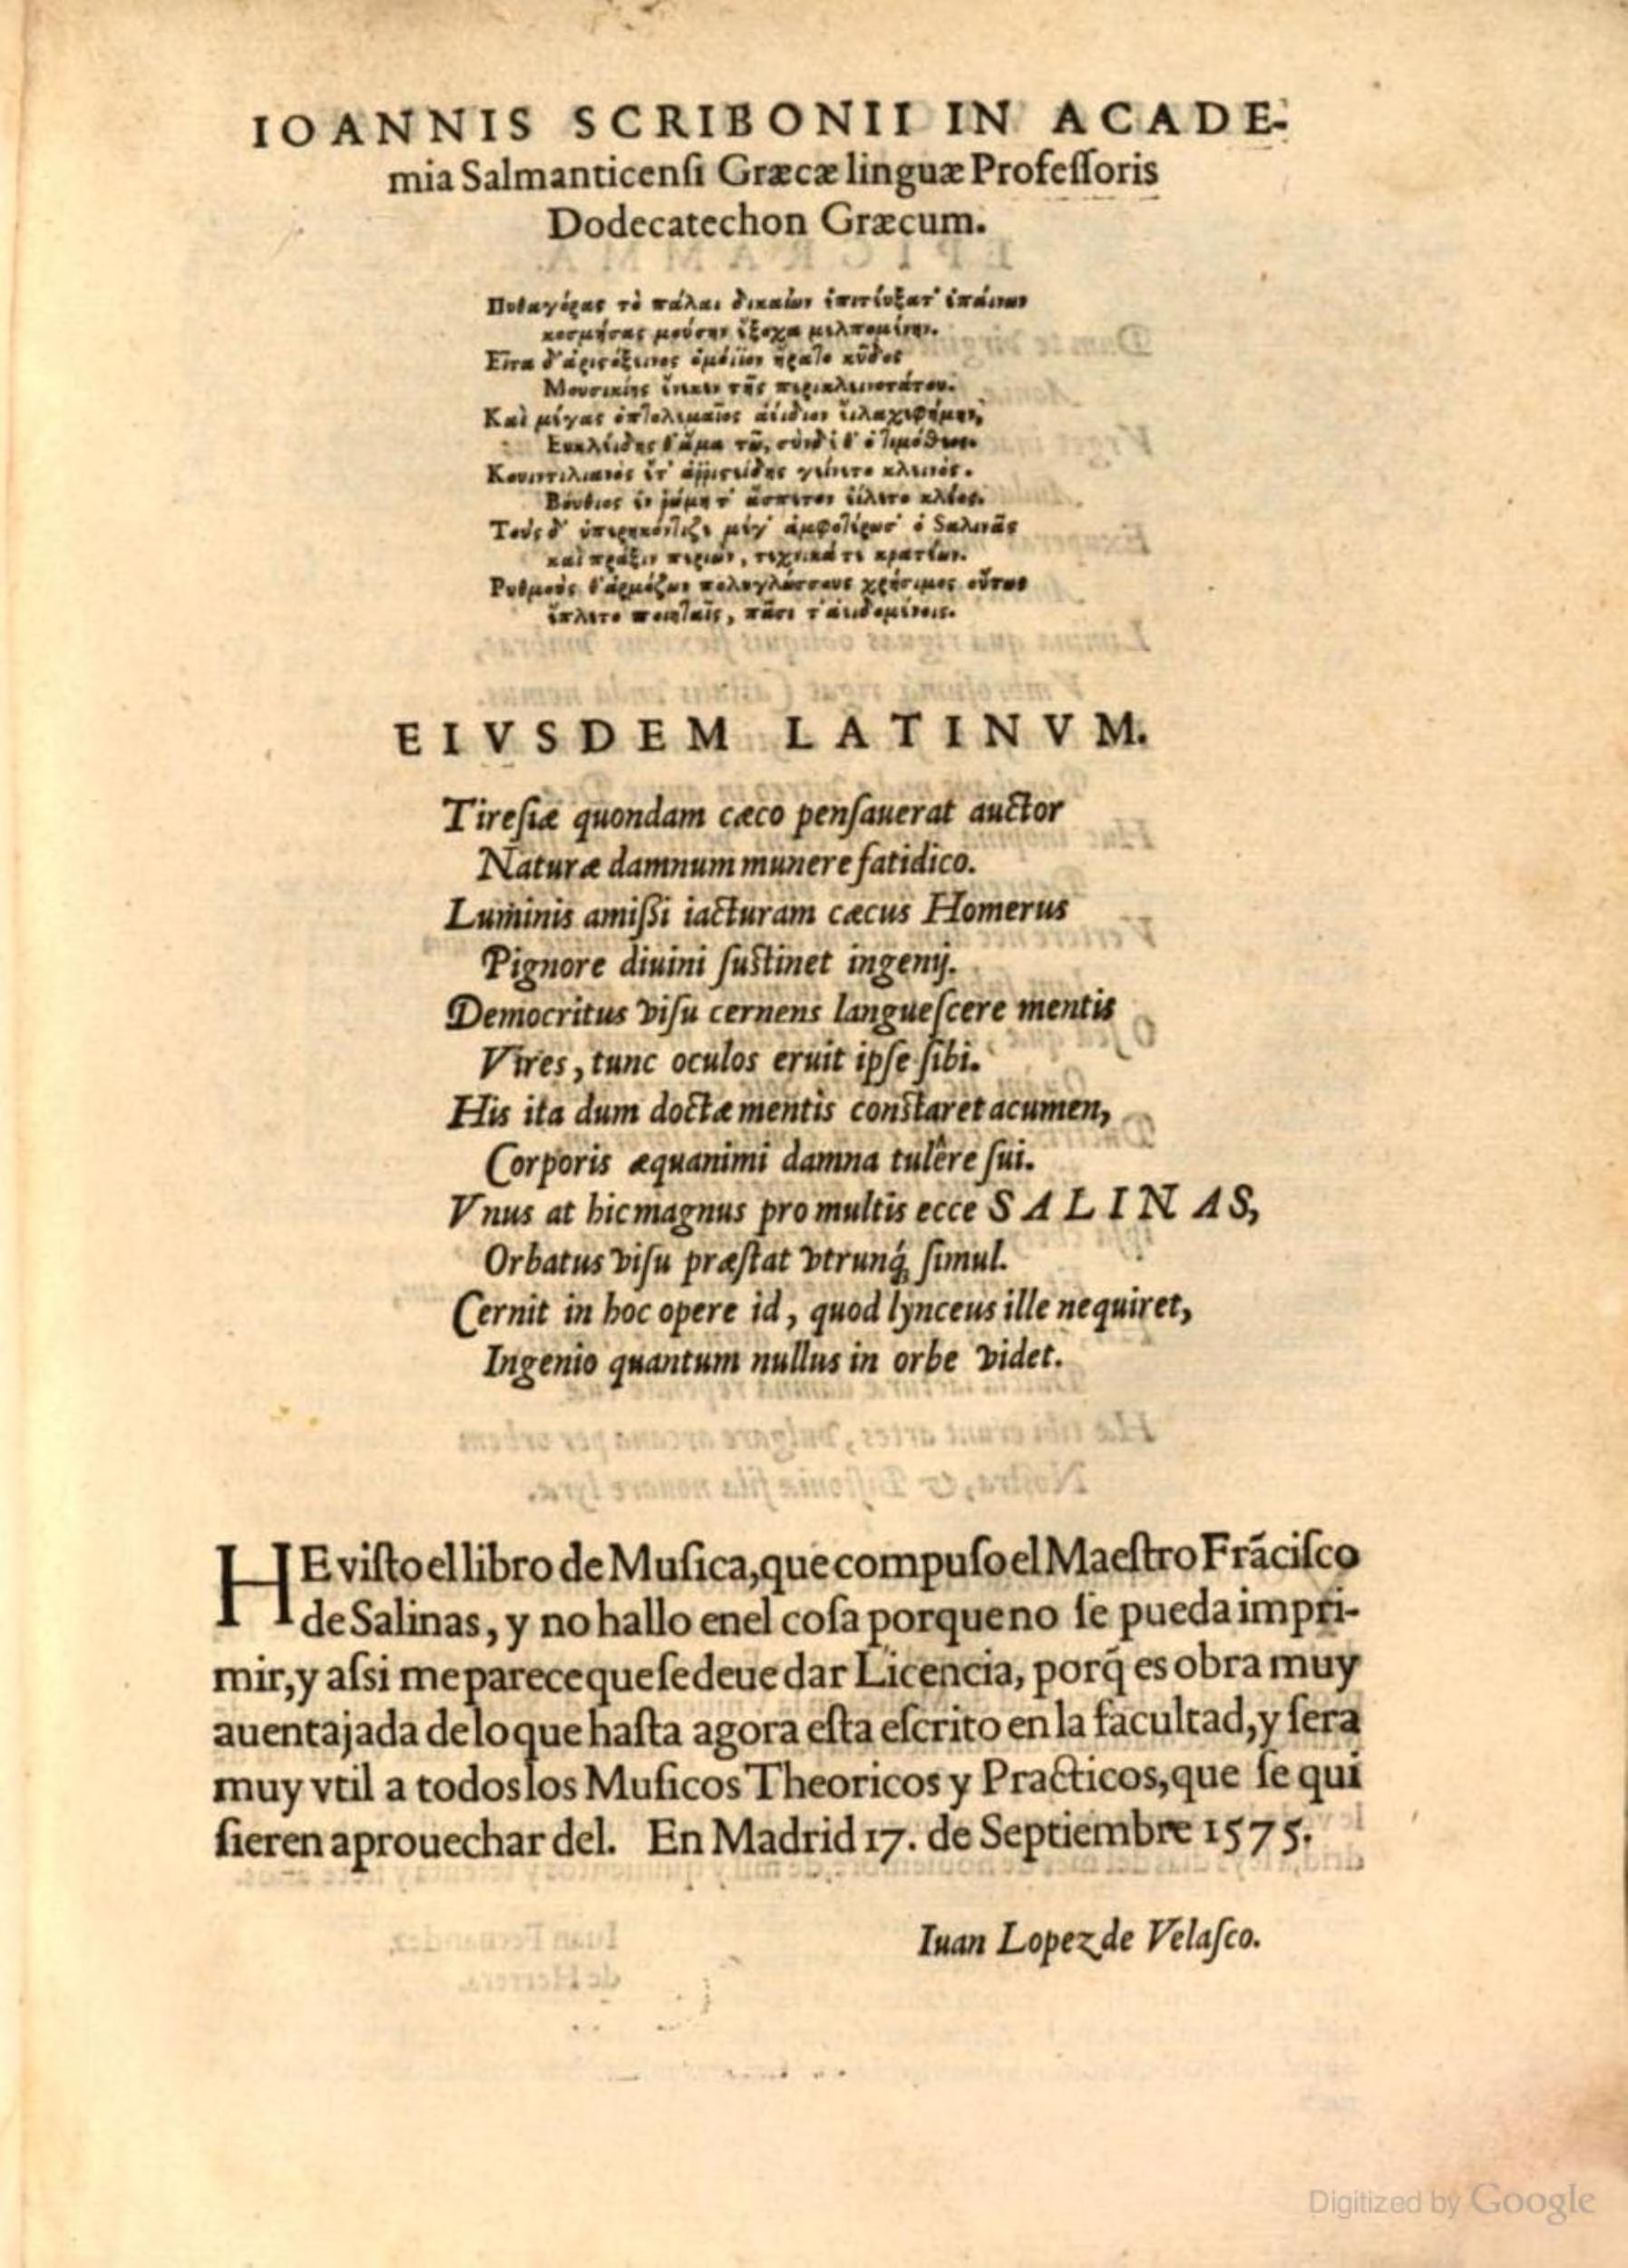 IOANNIS SCRIBONII IN ACADE-
mia Salmanticenſi Græcæ linguæ Profeſſoris
Dodecatechon Græcum.
Πυθαγόρας τὸ πάλαι δικαίων
κοσμήσας μούσην ἔξοχα μελπομένην.
Εἶτα δ' ὁμοίϊον κῦδος
Μουσικῆς τῆς
Καὶ μέγας
Εὐκλείδης
Κουιντιλιανὸς γείνετο κλεινὸς.
Βόηθιος ἐν ῥώμῃ τ' ἄσπετον κλέος.
Τοὺς δ' μέγ' ὁ Σαλινᾶς
καὶ πρᾶξιν
Ρυθμοὺς δ' ἁρμόζων πολυγλώσσους χρήσιμος οὗτος
ἔπλετο ποιηταῖς, πᾶσι
EIVSDEM LATINVM.
Tireſiæ quondam cæco penſauerat auctor
Naturæ damnum munere fatidico.
Luminis amiſſi iacturam cæcus Homerus
Pignore diuini ſuſtinet ingenij.
Democritus viſu cernens langueſcere mentis
Vires, tunc oculos eruit ipſe ſibi.
His ita dum doctæ mentis conſtaret acumen,
Corporis æquanimi damna tulêre ſui.
Vnus at hic magnus pro multis ecce SALINAS,
Orbatus viſu præſtat vtrunq́; ſimul.
Cernit in hoc opere id, quod lynceus ille nequiret,
Ingenio quantum nullus in orbe videt.
HE viſto el libro de Muſica, que compuſo el Maeſtro Frãciſco
de Salinas, y no hallo enel coſa porque no ſe pueda impri-
mir, y aſsi me parece que ſe deue dar Licencia, porq̃ es obra muy
auentajada de lo que haſta agora eſta eſcrito en la facultad, y ſera
muy vtil a todos los Muſicos Theoricos y Practicos, que ſe qui
ſieren aprouechar del. En Madrid 17. de Septiembre 1575.
Iuan Lopez de Velaſco.
Digitized by Google